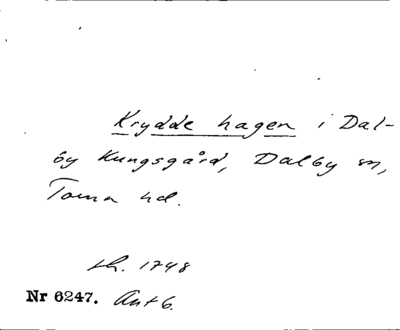 Krydde hagen i Dal-
by Kungsgård, Dalby sn,
Torna hd.
th. 1748
Nr 6247. Ant 6.